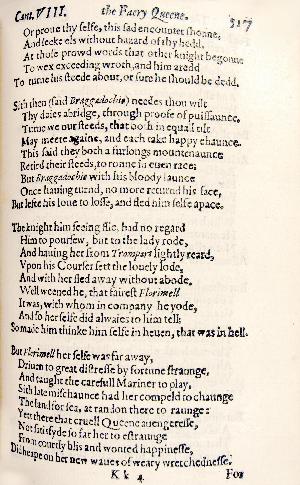 Cant. VIII. the Faery Queene. 317
Or proue thy selfe, this sad encounter shonne,
And seeke els without hazard of thy hedd.
At those prowd words that other knight begonne
To wex exceeding wroth, and him aredd
To turne his steede about, or sure he should be dedd.
Sith then (said Braggadochio) needes thou wilt
Thy daies abridge, through proofe of puissaunce,
Turne we our steeds, that both in equall tilt
May meete againe, and each take happy chaunce.
This said they both a furlongs mountenaunce
Retird their steeds, to ronne in euen race:
But Braggadochio with his bloody launce
Once hauing turnd, no more returnd his face,
But lefte his loue to losse, and fled him selfe apace.
The knight him seeing flie, had no regard
Him to poursew, but to the lady rode,
And hauing her from Trompart lightly reard,
Vpon his Courser sett the louely lode,
And with her fled away without abode.
Well weened he, that fairest Florimell
It was, with whom in company he yode,
And so her selfe did alwaies to him tell;
So made him thinke him selfe in heuen, that was in hell.
But Florimell her selfe was far away,
Driuen to great distresse by fortune straunge,
And taught the carefull Mariner to play,
Sith late mischaunce had her compeld to chaunge
The land for sea, at randon there to raunge:
Yett there that cruell Queene auengeresse,
Not satisfyde so far her to estraunge
From courtly blis and wonted happinesse,
Did heape on her new waues of weary wretchednesse.
K k 4 For